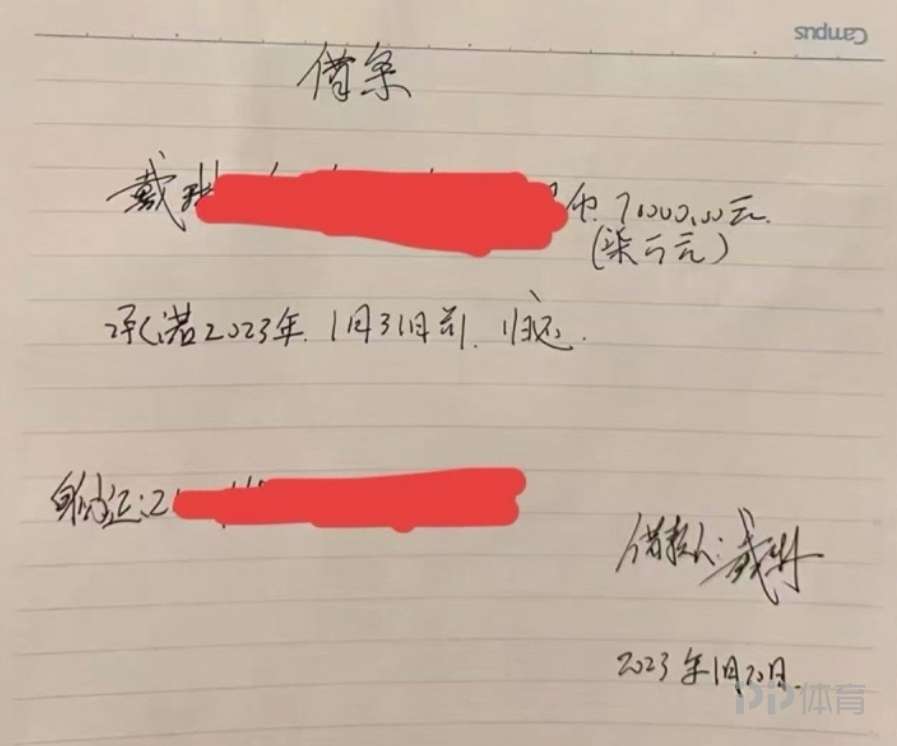 Campus
借条
戴琳 币 7000.00元.
(柒仟元)
承诺2023年.1月31日前.归还.
身份证:2
借款人:戴琳
2023年1月20日.
PP体育